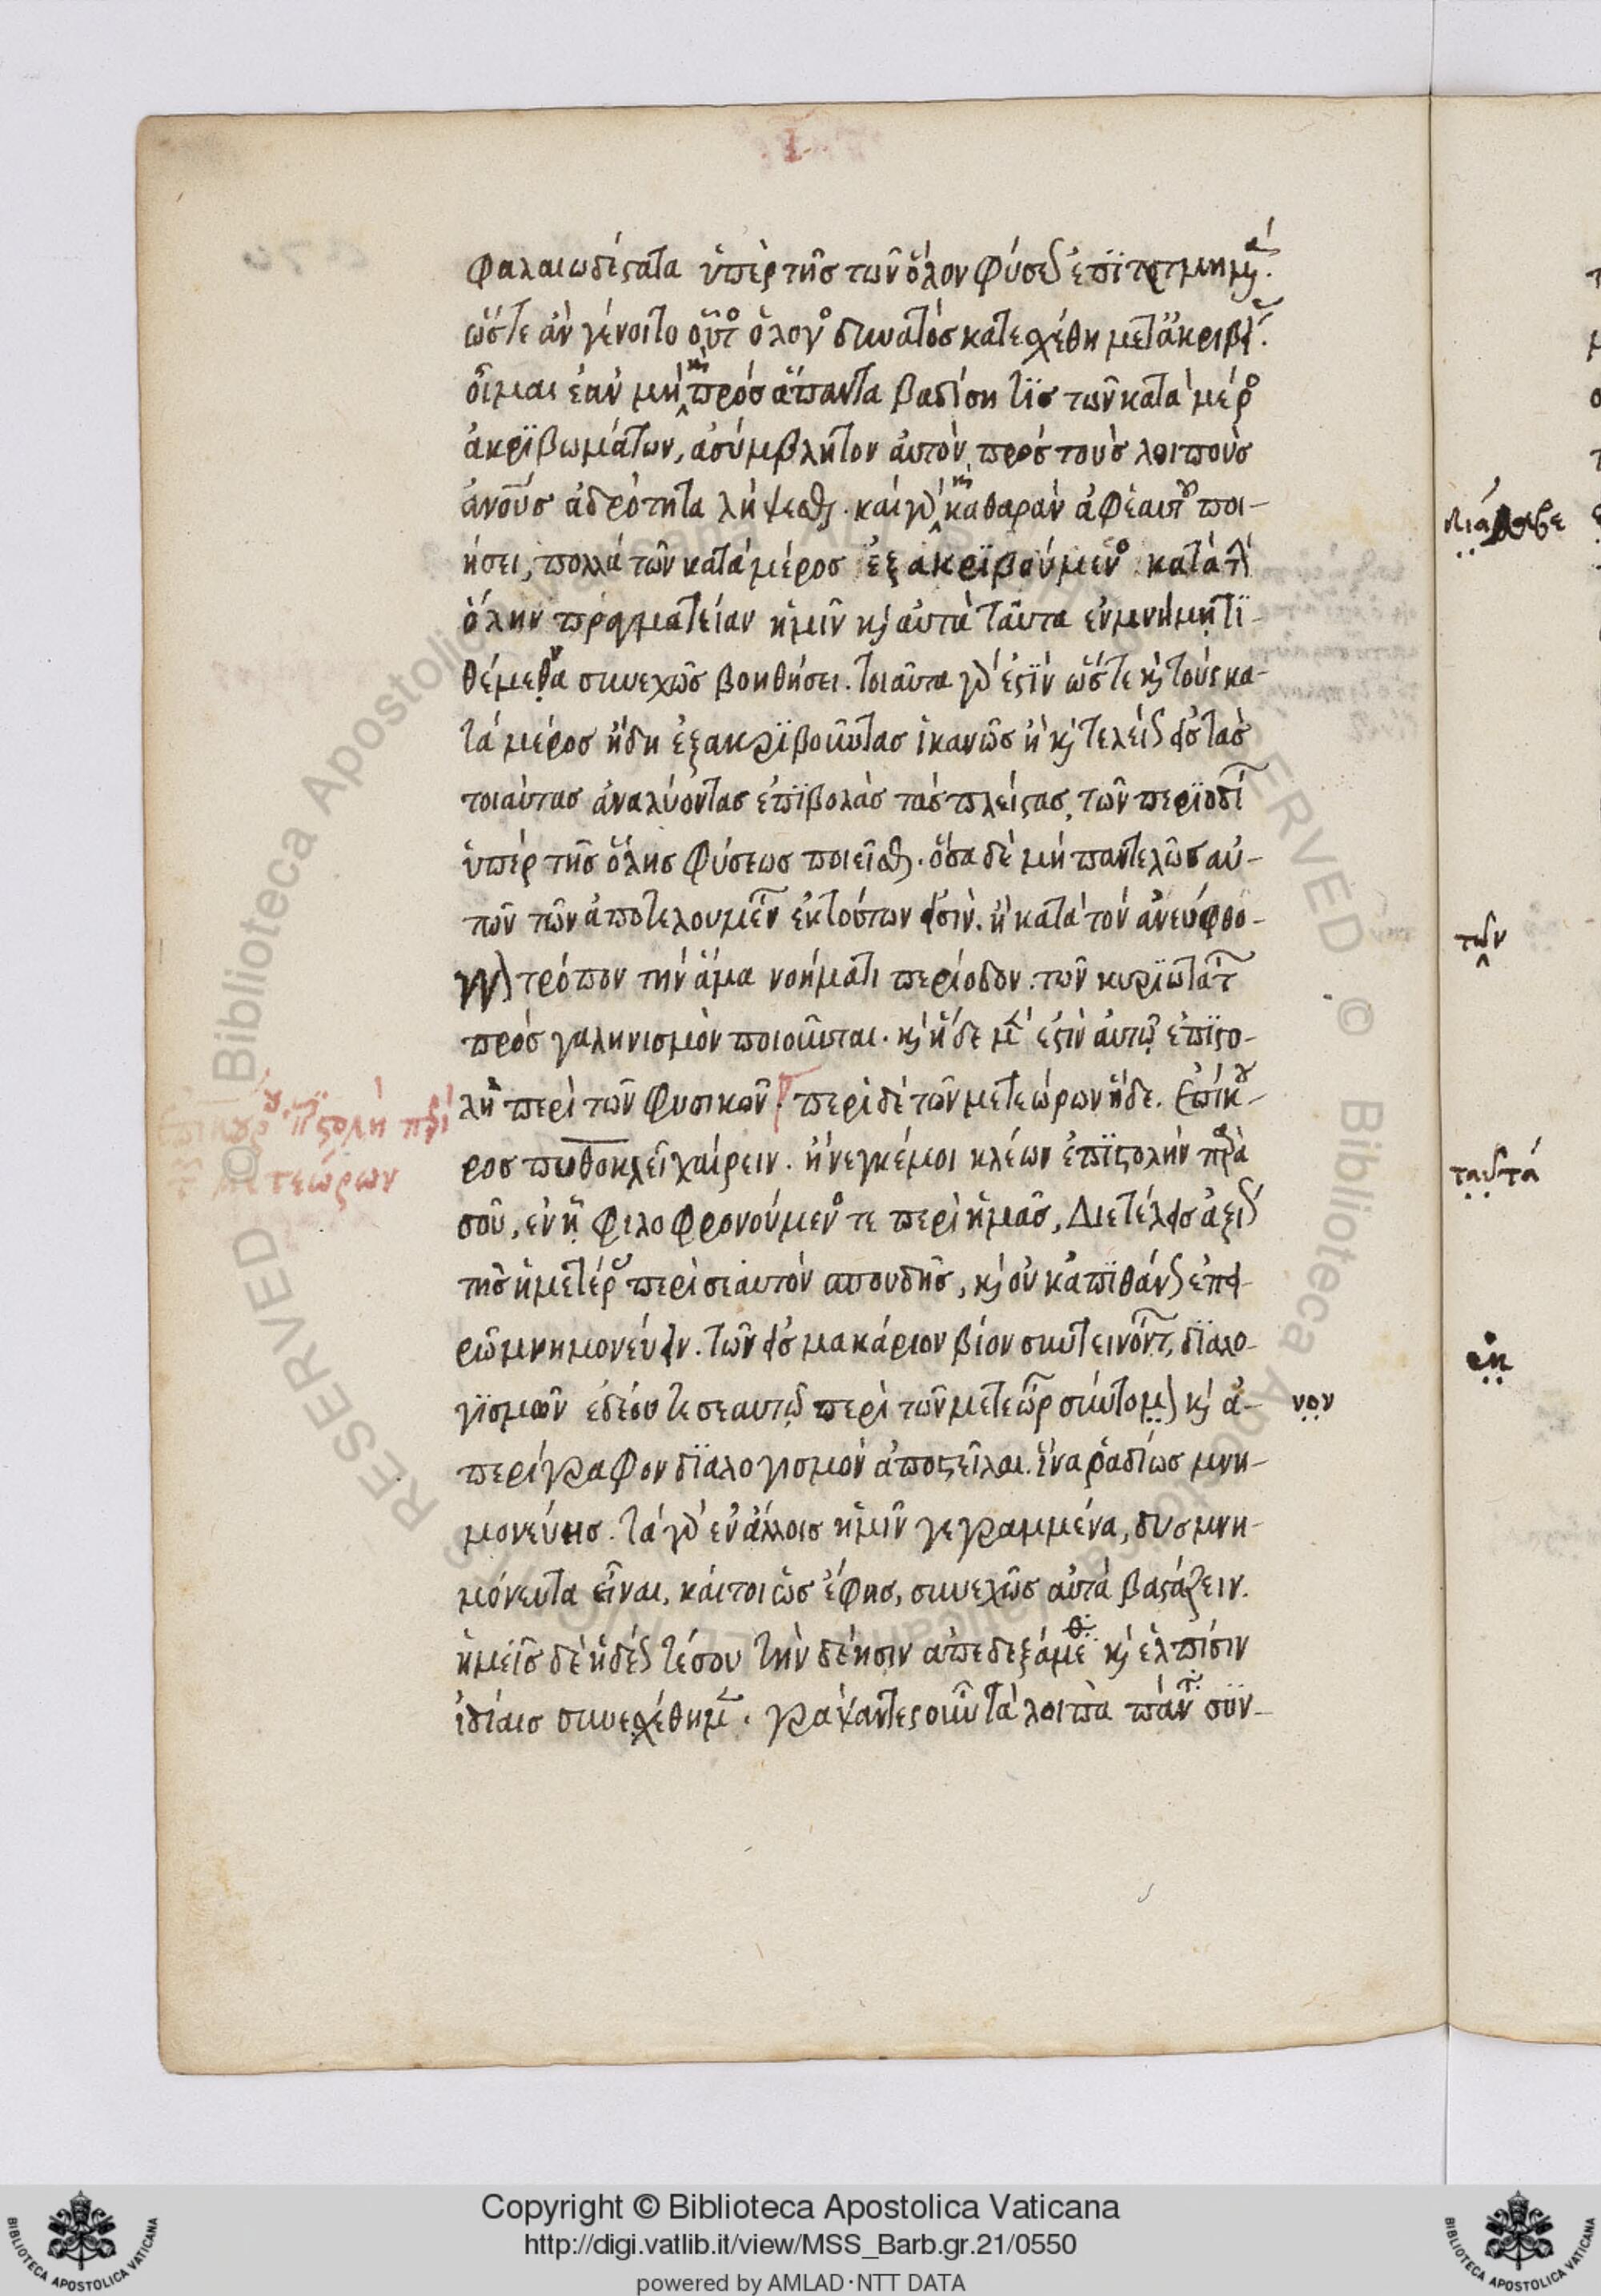 φαλαιωδέστατα ὑπὲρ τῆς τῶν ὅλον φύσεως ἐπϊτετμημένα.
ὥστε ἂν γένοιτο οὗτος ὁ λόγος δυνατὸς κατεχέθη μετ ἀκριβείας.
οἶμαι ἐὰν μὴ καὶ πρὸς ἅπαντα βαδίση τὶς τῶν κατὰ μέρος
ἀκρϊβωμάτων, ἀσύμβλητον αὐτὸν πρὸς τοὺς λοιποὺς
ἀνους ἁδρότητα λήψεσθαι. καὶ γὰρ καὶ καθαρὰν ἀφ ἑαυτοῦ ποι-
ήσει, πολλὰ τῶν κατὰ μέρος ἐξακρϊβούμενος κατὰ τὴν
ὅλην πραγματείαν ἡμῖν καὶ αὐτὰ ταῦτα ἐν μνήμῃ τϊ-
θέμεθα συνεχῶς βοηθήσει. τοιαῦτα γάρ ἐστϊν ὥστε καὶ τοὺς κα-
τὰ μέρος ἤδη ἐξακρϊβοῦντας ἱκανῶς ἢ καὶ τελείως εἰς τὰς
τοιαύτας ἀναλύοντας ἐπϊβολὰς τὰς πλείστας τῶν περϊοδειῶν
ὑπὲρ τῆς ὅλης φύσεως ποιεῖσθαι. ὅσα δὲ μὴ παντελῶς αὐ-
τῶν τῶν ἀποτελουμένων ἐκ τούτων εἰσὶν. ἢ κατὰ τὸν ἄνευ φθό-
γγων τρόπον τὴν ἅμα νοήματι περίοδον. τῶν κυρϊωτάτων
πρὸς γαληνισμὸν ποιοῦνται. καὶ ἥδε μέν ἐστὶν αὐτῷ ἐπϊστο-
λὴ περὶ τῶν φυσικῶν. περὶ δὲ τῶν μετεώρων ἥδε. ἐπίκου-
ρος πυθοκλεῖ χαίρειν. ἤνεγκέ μοι κλέων ἐπϊστολὴν παρὰ
σοῦ, ἐν ᾗ φιλοφρονούμενός τε περὶ ἡμᾶς, διετέλεις ἀξίως
τῆς ἡμετέρας περὶ σεαυτὸν σπουδῆς, καὶ οὐκ ἀπϊθάνως ἐπει-
ρῶ μνημονεύειν. τῶν εἰς μακάριον βίον συντεινόντων διαλο-
γϊσμῶν ἐδέου τε σεαυτῷ περὶ τῶν μετεώρων σύντομον καὶ ἀ- νον
περίγραφον δϊαλογισμὸν ἀποστεῖλαι. ἵνα ῥαδίως μνη-
μονεύῃς. τὰ γὰρ ἐν ἄλλοις ἡμῖν γεγραμμένα, δυσμνη-
μόνευτα εἶναι, καίτοι ὡς ἔφης, συνεχῶς αὐτὰ βαστάζειν.
ἡμεῖς δὲ ἡδέως τέ σου τὴν δέησιν ἀπεδεξάμεθα καὶ ἐλπίσιν
ἰδίαις συνεχέθημεν. γράψαντες οὖν τὰ λοιπὰ πάντα σϋν-
ἐπικούρου ἐπϊστολὴ περὶ
μετεώρων
τῶν
ταυτά
Copyright © Biblioteca Apostolica Vaticana
http://digi.vatlib.it/view/MSS_Barb.gr.21/0550
powered by AMLAD·NTT DATA